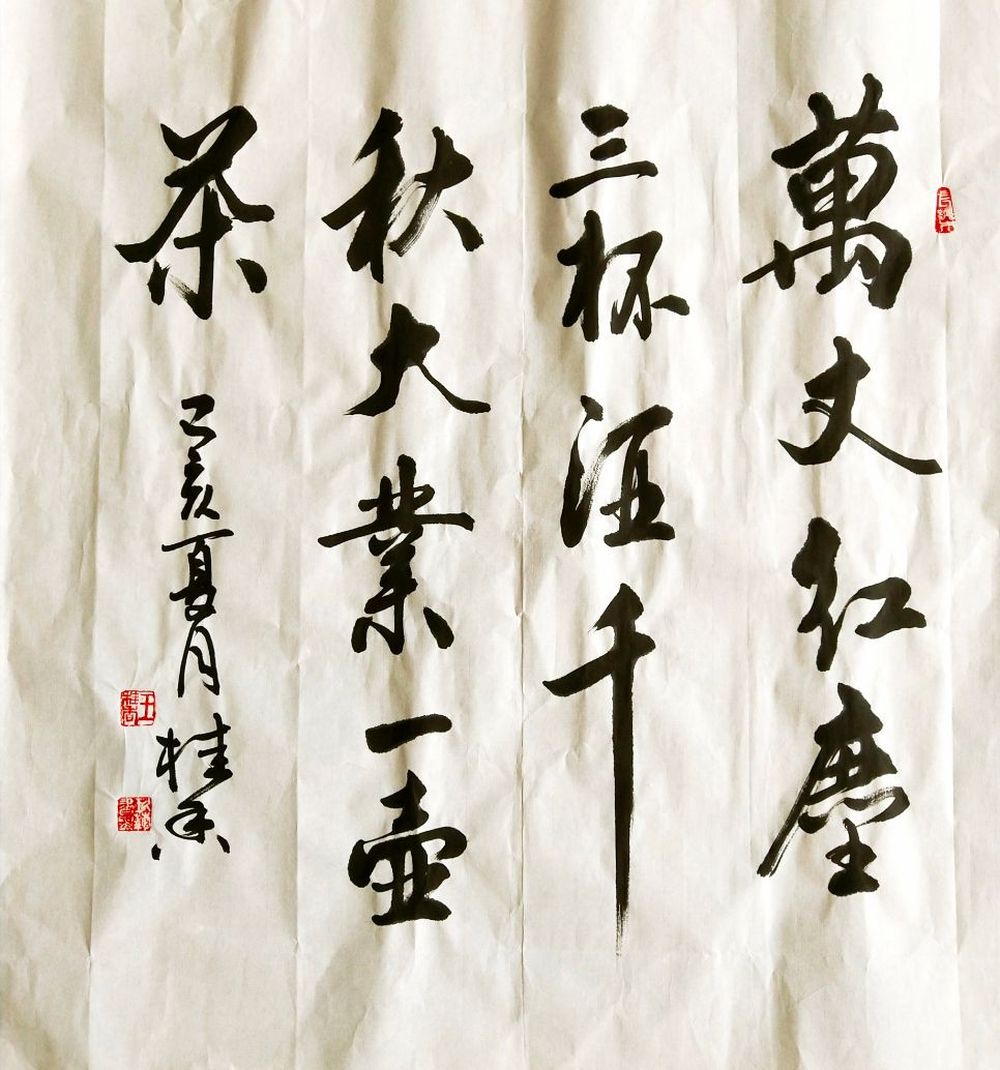 萬丈红塵
三杯酒千
秋大業一壺
茶
己亥夏月 桂香